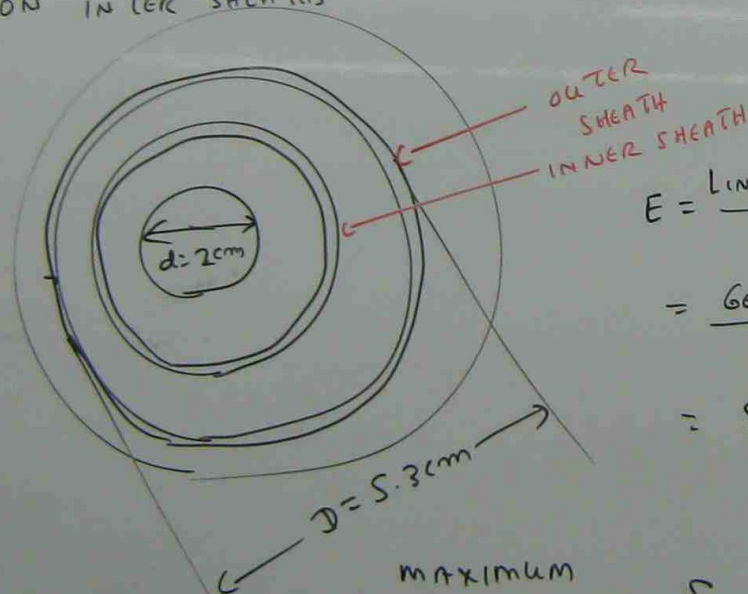 ON INTER SHEATHS
OUTER
SHEATH
INNER SHEATH
d= 2cm
E =
=
=
D= 5.3cm
MAXIMUM